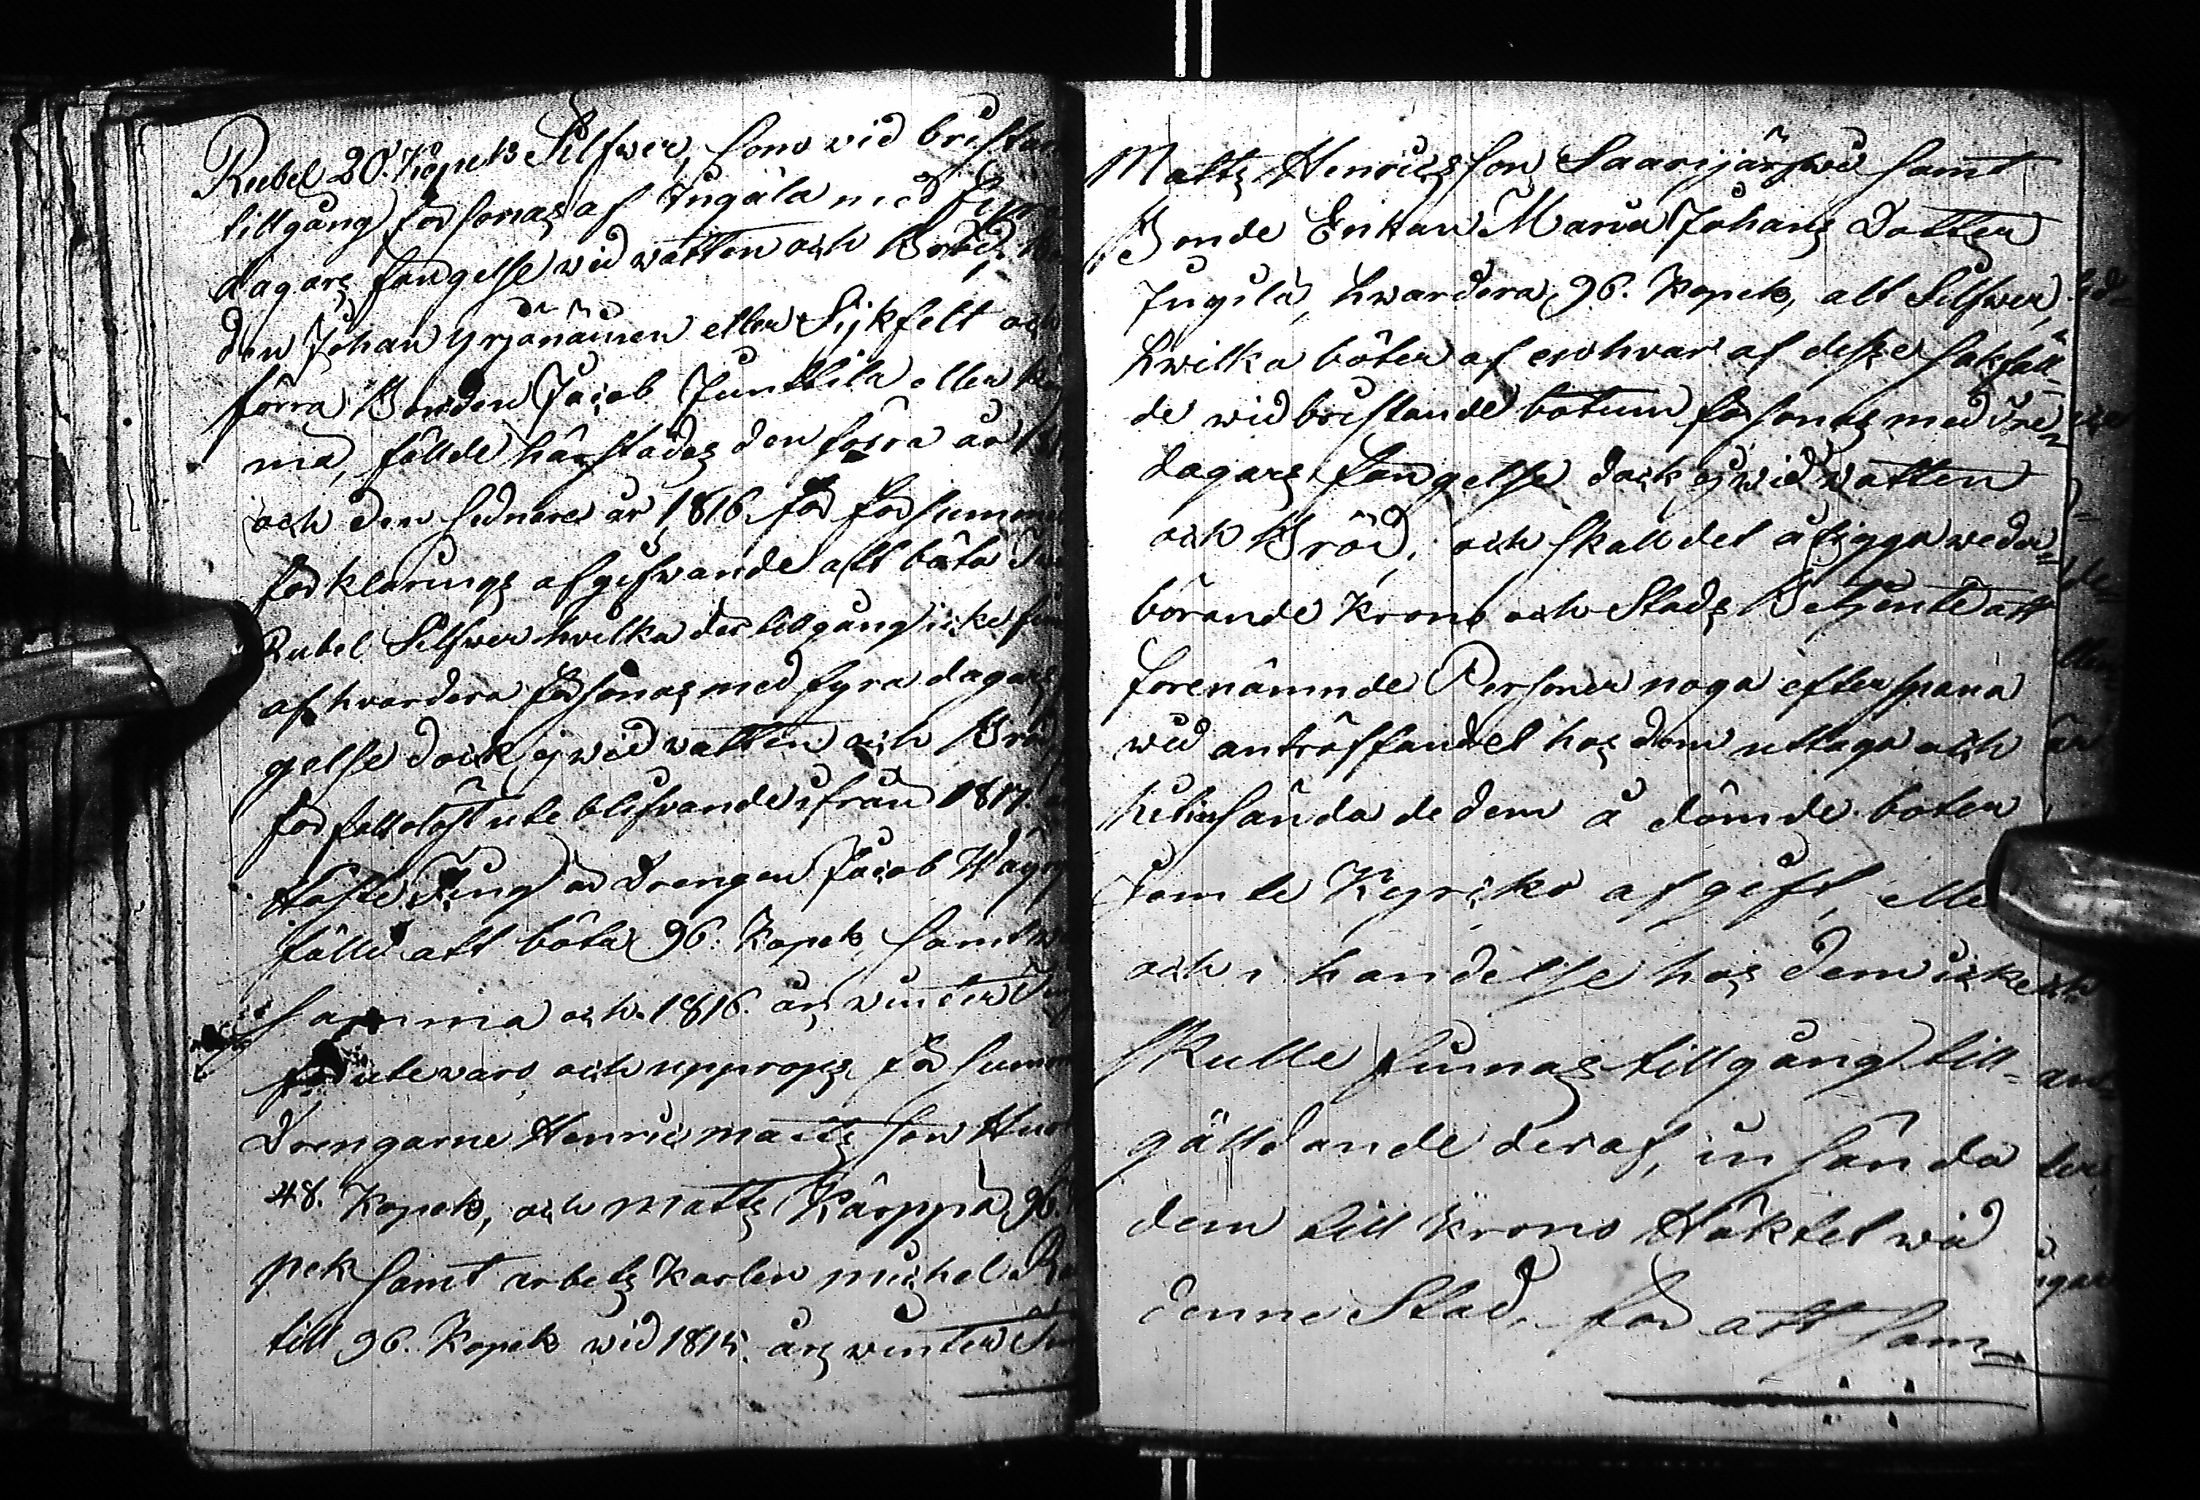 Rubel 20. Kopek Silfwer, som vid bristan
tillgång försonas af Jugila med fyra
dagars fängelse wid watten och Bröd,
den Johan Yrjänäinen eller Sijkfelt och
förra Bonden Jacob Junttila eller
ma, fällde härstädes den förra år
och den sednare år 1816 för försumme
förklarings afgifwande att böta
Rubel Silfwer hvilka der tillgång icke
af hvardera försonas med fyra dagars
gelse dock ej wid watten och Brö
förfallolöst uteblifvande ifrån 1817.
Höste Ting är Drengen Jacob
fälld att böta 96. Kopek, samt
samma och 1816. års winter
för utevaro och upprops försum
Drengarne Henric Matts son
48. Kopek, och Matts Kärppä 96.
pek samt arbets Karlen Michel
till 96. Kopek wid 1815. års winter
Matts Henricsson Saarijärfwi samt
Bonde Enkan Maria Johans Dotter
Jugila, hwardera 96. Kopek, alt Silfwer,
hwilka böter af enhwar af desse sakfäll-
de wid bristande botum försonas med tre
dagars fängelse dock ej wid watten
och Bröd; och skall det åligga weder-
börande Krono och Stads Betjente att
förenämnde Personer noga efterspana
wid anträffandet hos dem uttaga och
hitinsända de dem å dömde böter
Jemte Kyriko afgift, elle
och i händelse hos dem icke
skulle finnas tillgång till-
gälldande deraf, insända
dem till Krono Häktet wid
denne Stad, för att som-